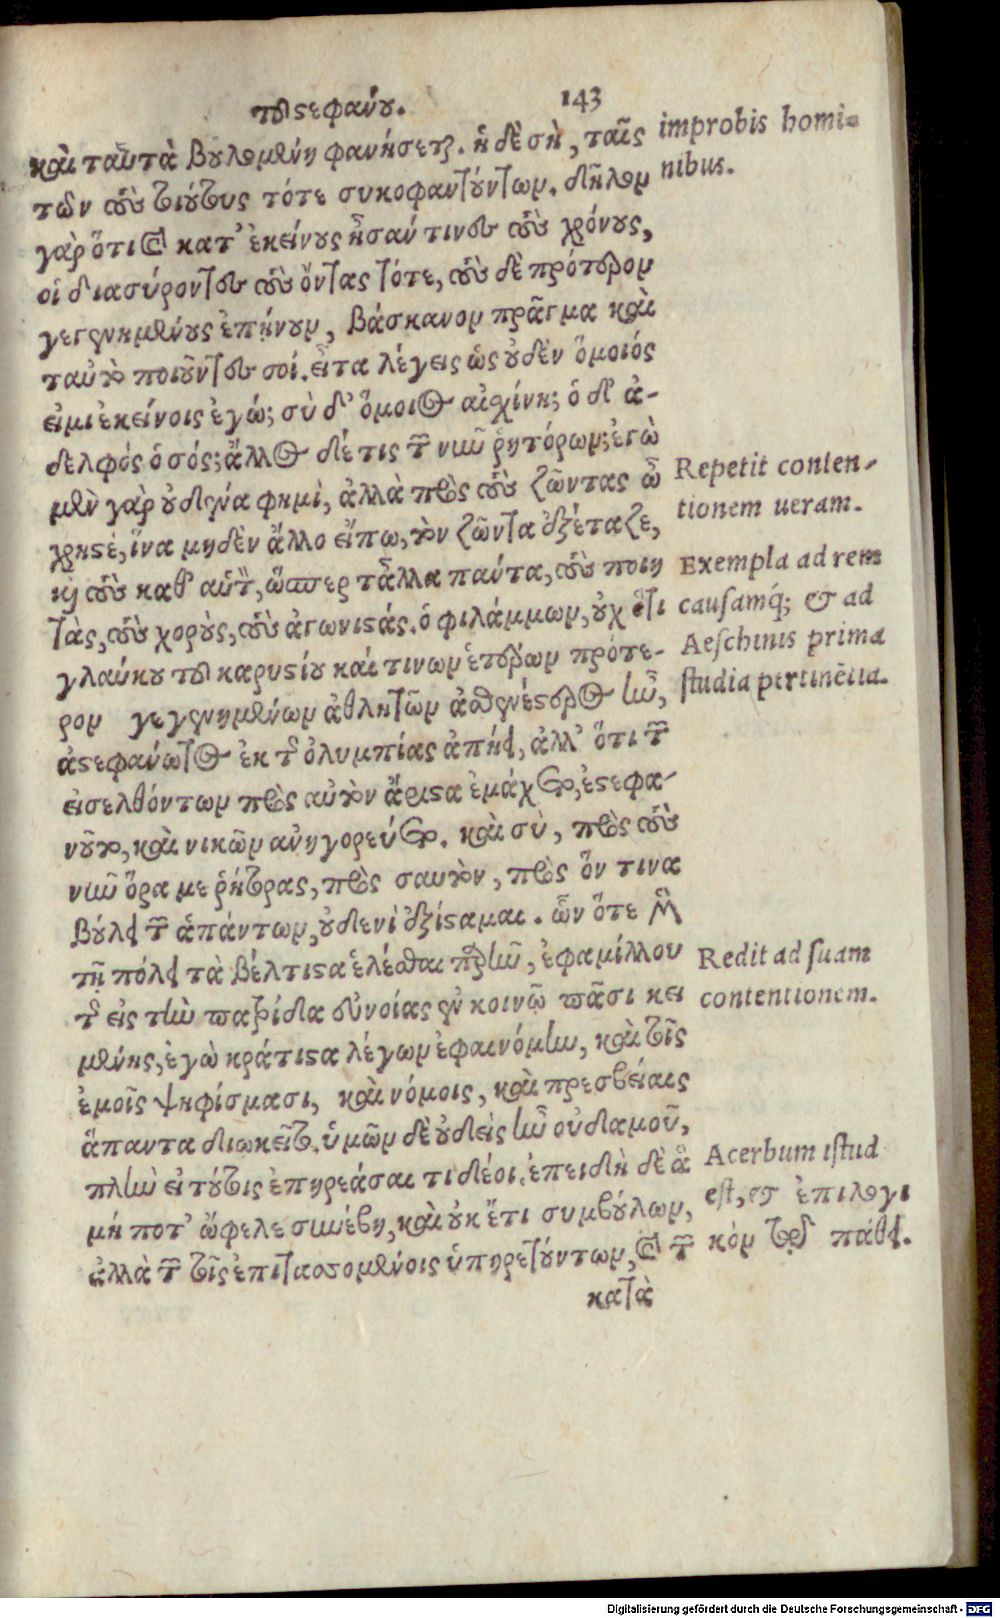 τοῦ στεφάνου. 143
καὶ ταῦτα βουλομένη φανήσεται. ἡ δὲ σὴ, ταῖς
improbis homi=
τῶν τοὺς τοιούτους τότε συκοφαντούντων. δῆλον
nibus.
γὰρ ὅτι καὶ κατ᾽ ἐκείνους ἦσάν τινες τοὺς χρόνους,
οἱ διασύροντες τοὺς ὄντας τότε, τοὺς δὲ πρότερον
γεγενημένους ἐπῄνουν, βάσκανον πρᾶγμα καὶ
ταὐτὸ ποιοῦντες σοί. εἶτα λέγεις ὡς οὐδὲν ὅμοιός
εἰμι ἐκείνοις ἐγώ; σὺ δ᾽ ὅμοιος αἰσχίνη; ὁ δ᾽ ἀ-
δελφός ὁ σός; ἄλλος δέ τις τῶν νῦν ῥητόρων; ἐγὼ
μὲν γὰρ οὐδένα φημὶ, ἀλλὰ πρὸς τοὺς ζῶντας ὦ
Repetit conten-
tionem ueram.
χρηστέ, ἵνα μηδὲν ἄλλο εἴπω, τὸν ζῶντα ἐξέταζε,
καὶ τοὺς καθ᾽ αὑτὸν, ὥσπερ τἆλλα πάντα, τοὺς ποιη
Exempla ad rem
τὰς, τοὺς χοροὺς, τοὺς ἀγωνιστάς. ὁ φιλάμμων, οὐχ ὅτι
causamq́; & ad
γλαύκου τοῦ καρυστίου καί τινων ἑτέρων πρότε-
Aeschinis prima
ρον γεγενημένων ἀθλητῶν ἀσθενέστερος ἦν,
studia pertinẽtia.
ἀστεφάνωτος ἐκ τῆς ὀλυμπίας ἀπῄει, ἀλλ᾽ ὅτι τῶν
εἰσελθόντων πρὸς αὐτὸν ἄριστα ἐμάχετο, ἐστεφα-
νοῦτο, καὶ νικῶν ἀνηγορεύετο. καὶ σὺ, πρὸς τοὺς
νῦν ὅρα με ῥήτορας, πρὸς σαυτὸν, πρὸς ὅν τινα
βούλει τῶν ἁπάντων, οὐδενὶ ἐξίσταμαι. ὧν ὅτε μὲν
τῇ πόλει τὰ βέλτιστα ἑλέσθαι παρῆν, ἐφαμίλλου
Redit ad suam
τῆς εἰς τὴν πατρίδα εὐνοίας ἐν κοινῷ πᾶσι κει
contentionem.
μένης, ἐγὼ κράτιστα λέγων ἐφαινόμην, καὶ τοῖς
ἐμοῖς ψηφίσμασι, καὶ νόμοις, καὶ πρεσβείαις
ἅπαντα διῳκεῖτο. ὑμῶν δὲ οὐδεὶς ἦν οὐδαμοῦ,
πλὴν εἰ τούτοις ἐπηρεάσαι τι δέοι. ἐπειδὴ δὲ ἃ
Acerbum istud
μή ποτ᾽ ὤφελε συνέβη, καὶ οὐκ ἔτι συμβούλων,
est, & ἐπιλογι
ἀλλὰ τῶν τοῖς ἐπιτασσομένοις ὑπηρετούντων, καὶ τῶν
κὸν τῷδε πάθει.
κατὰ
Digitalisierung gefördert durch die Deutsche Forschungsgemeinschaft - DFG